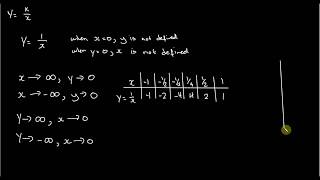 Y = K/x
Y = 1/x
when x=0, y is not defined
when y=0, x is not defined
x → ∞, y → 0
x → -∞, y → 0
Y → ∞, x → 0
Y → -∞, x → 0
x | -1 | -½ | -¼ | ¼ | ½ | 1
Y = 1/x | -1 | -2 | -4 | 4 | 2 | 1